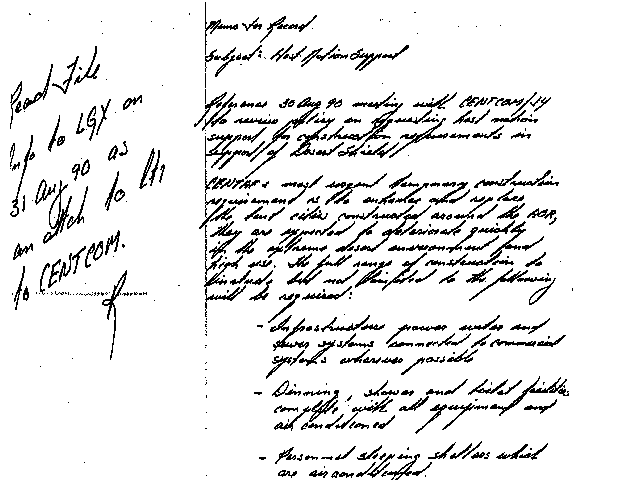 Read File
Info to LGX on
31 Aug 90 as
an attch to ltr
to CENTCOM.
Memo for Record
Subject: Host Nation Support
Reference 30 Aug 90 meeting with CENTCOM/J4
to review policy on requesting host nation
support for construction requirements in
support of Desert Shield.
CENTAF's most urgent temporary construction
requirement is to and replace
the tent cities constructed around the AOR,
they are expected to deteriorate quickly
in the extreme desert environment and
high use. The full range of construction to
include but not limited to the following
will be required:
- Infrastructure power water and
sewer systems connected to commercial
systems wherever possible
- Dinning, shower and toilet facilities
complete with all equipment and
air conditioned
- Personnel sleeping shelters which
are air conditioned.